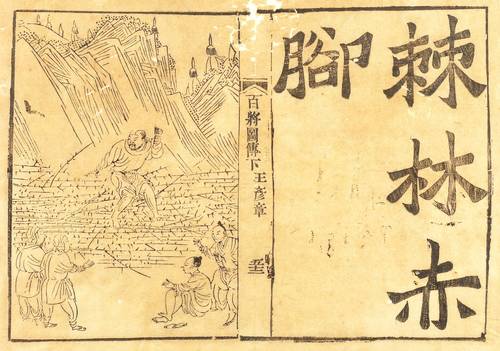 棘林赤
腳
百將圖傳下 王彥章